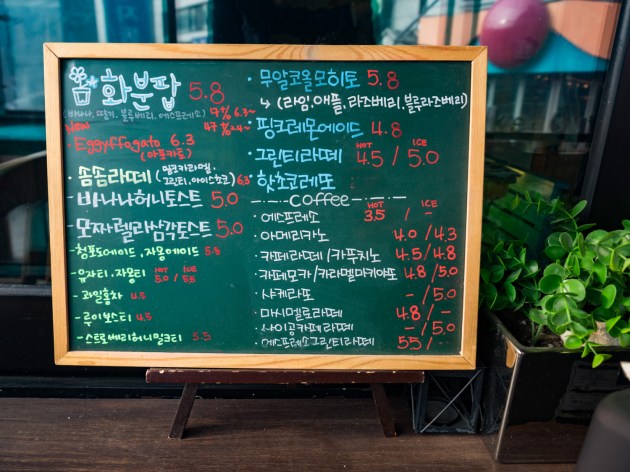 화분팝 5.8
(바나나, 딸기, 블루베리, 에스프레소)
New
Eggyffogato 6.3
(아포카토)
솜솜라떼 (밀크카라멜, 그린티, 아이스쵸코) 6.3
-바나나허니토스트 5.0
-모짜렐라삼각토스트 5.0
-청포도에이드, 자몽에이드 5.8
-유자티, 자몽티 HOT 5.0 / ICE 5.5
-과일홍차 4.5
-루이보스티 4.5
-스트로베리허니밀크티 5.5
·무알코올모히토 5.8
↳ (라임, 애플, 라즈베리, 블루라즈베리)
·핑크레몬에이드 4.8
·그린티라떼 HOT 4.5 / ICE 5.0
·핫쵸코레또
Coffee
HOT ICE
·에스프레소 3.5 / -
·아메리카노 4.0 / 4.3
·카페라떼 / 카푸치노 4.5 / 4.8
·카페모카 / 카라멜마키아또 4.8 / 5.0
·샤케라또 - / 5.0
·마시멜로라떼 4.8 / -
·사이공카페라떼 - / 5.0
·에스프레소그린티라떼 5.5 / -